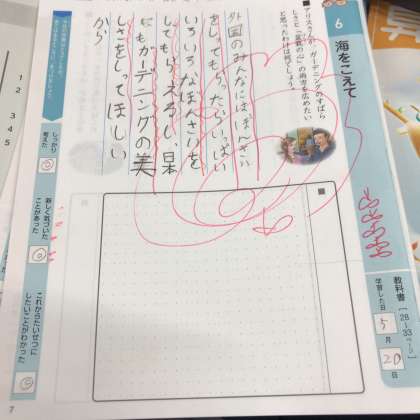 6
海をこえて
ガーデニングのすばら
しさと「盆栽の心」の両方を広めたい
と思ったわけは何でしょう。
外国のみんなにはぼんさい
をしてもらったらいっぱい
いろいろなぼんさいを
してもらえるし、日本
にもガーデニングの美
しさをしってほしい
から
教科書[28-33ページ]
学習した日 5月20日
しっかり
考えた
新しく気づいた
ことがあった
これからたいせつに
したいことがわかった
7
1
2
3
4
5